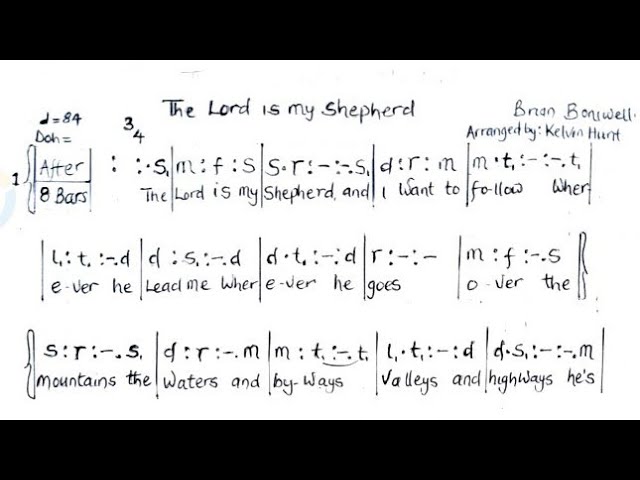 The Lord is my Shepherd
d=84
Doh=
3/4
Brian Boniwell.
Arranged by: Kelvin Hunt
1 After 8 Bars | : :.s, | m : f : s | s . r : - : -. s, | d : r : m | m . t, : - : -. t, |
The Lord is my Shepherd and I Want to follow Wher
| l, : t, : -. d | d : s, : -. d | d . t, : - : d | r : - : - | m : f : -. s
e-ver he Lead me Wher e-ver he goes O-ver the
s : r : -. s, | d : r : -. m | m : t, : -. t, | l, . t, : - : d | d . s, : - : -. m |
mountains the Waters and by-Ways Valleys and highWays he's